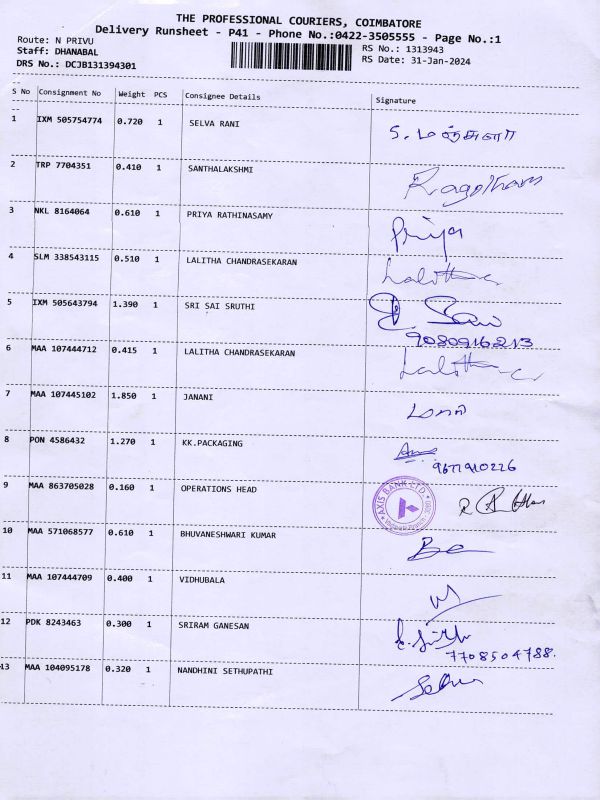 THE PROFESSIONAL COURIERS, COIMBATORE
Delivery Runsheet - P41 - Phone No.:0422-3505555 - Page No.:1
Route: N PRIVU
RS No.: 1313943
Staff: DHANABAL
RS Date: 31-Jan-2024
DRS No.: DCJB131394301
S No Consignment No Weight PCS Consignee Details Signature
1 IXM 505754774 0.720 1 SELVA RANI S. மஞ்சுளா
2 TRP 7704351 0.410 1 SANTHALAKSHMI
3 NKL 8164064 0.610 1 PRIYA RATHINASAMY Priya
4 SLM 338543115 0.510 1 LALITHA CHANDRASEKARAN
5 IXM 505643794 1.390 1 SRI SAI SRUTHI
9080916213
6 MAA 107444712 0.415 1 LALITHA CHANDRASEKARAN
7 MAA 107445102 1.850 1 JANANI
8 PON 4586432 1.270 1 KK.PACKAGING
9677910226
9 MAA 863705028 0.160 1 OPERATIONS HEAD AXIS BANK LTD.
10 MAA 571068577 0.610 1 BHUVANESHWARI KUMAR
11 MAA 107444709 0.400 1 VIDHUBALA
12 PDK 8243463 0.300 1 SRIRAM GANESAN
7708504788.
13 MAA 104095178 0.320 1 NANDHINI SETHUPATHI